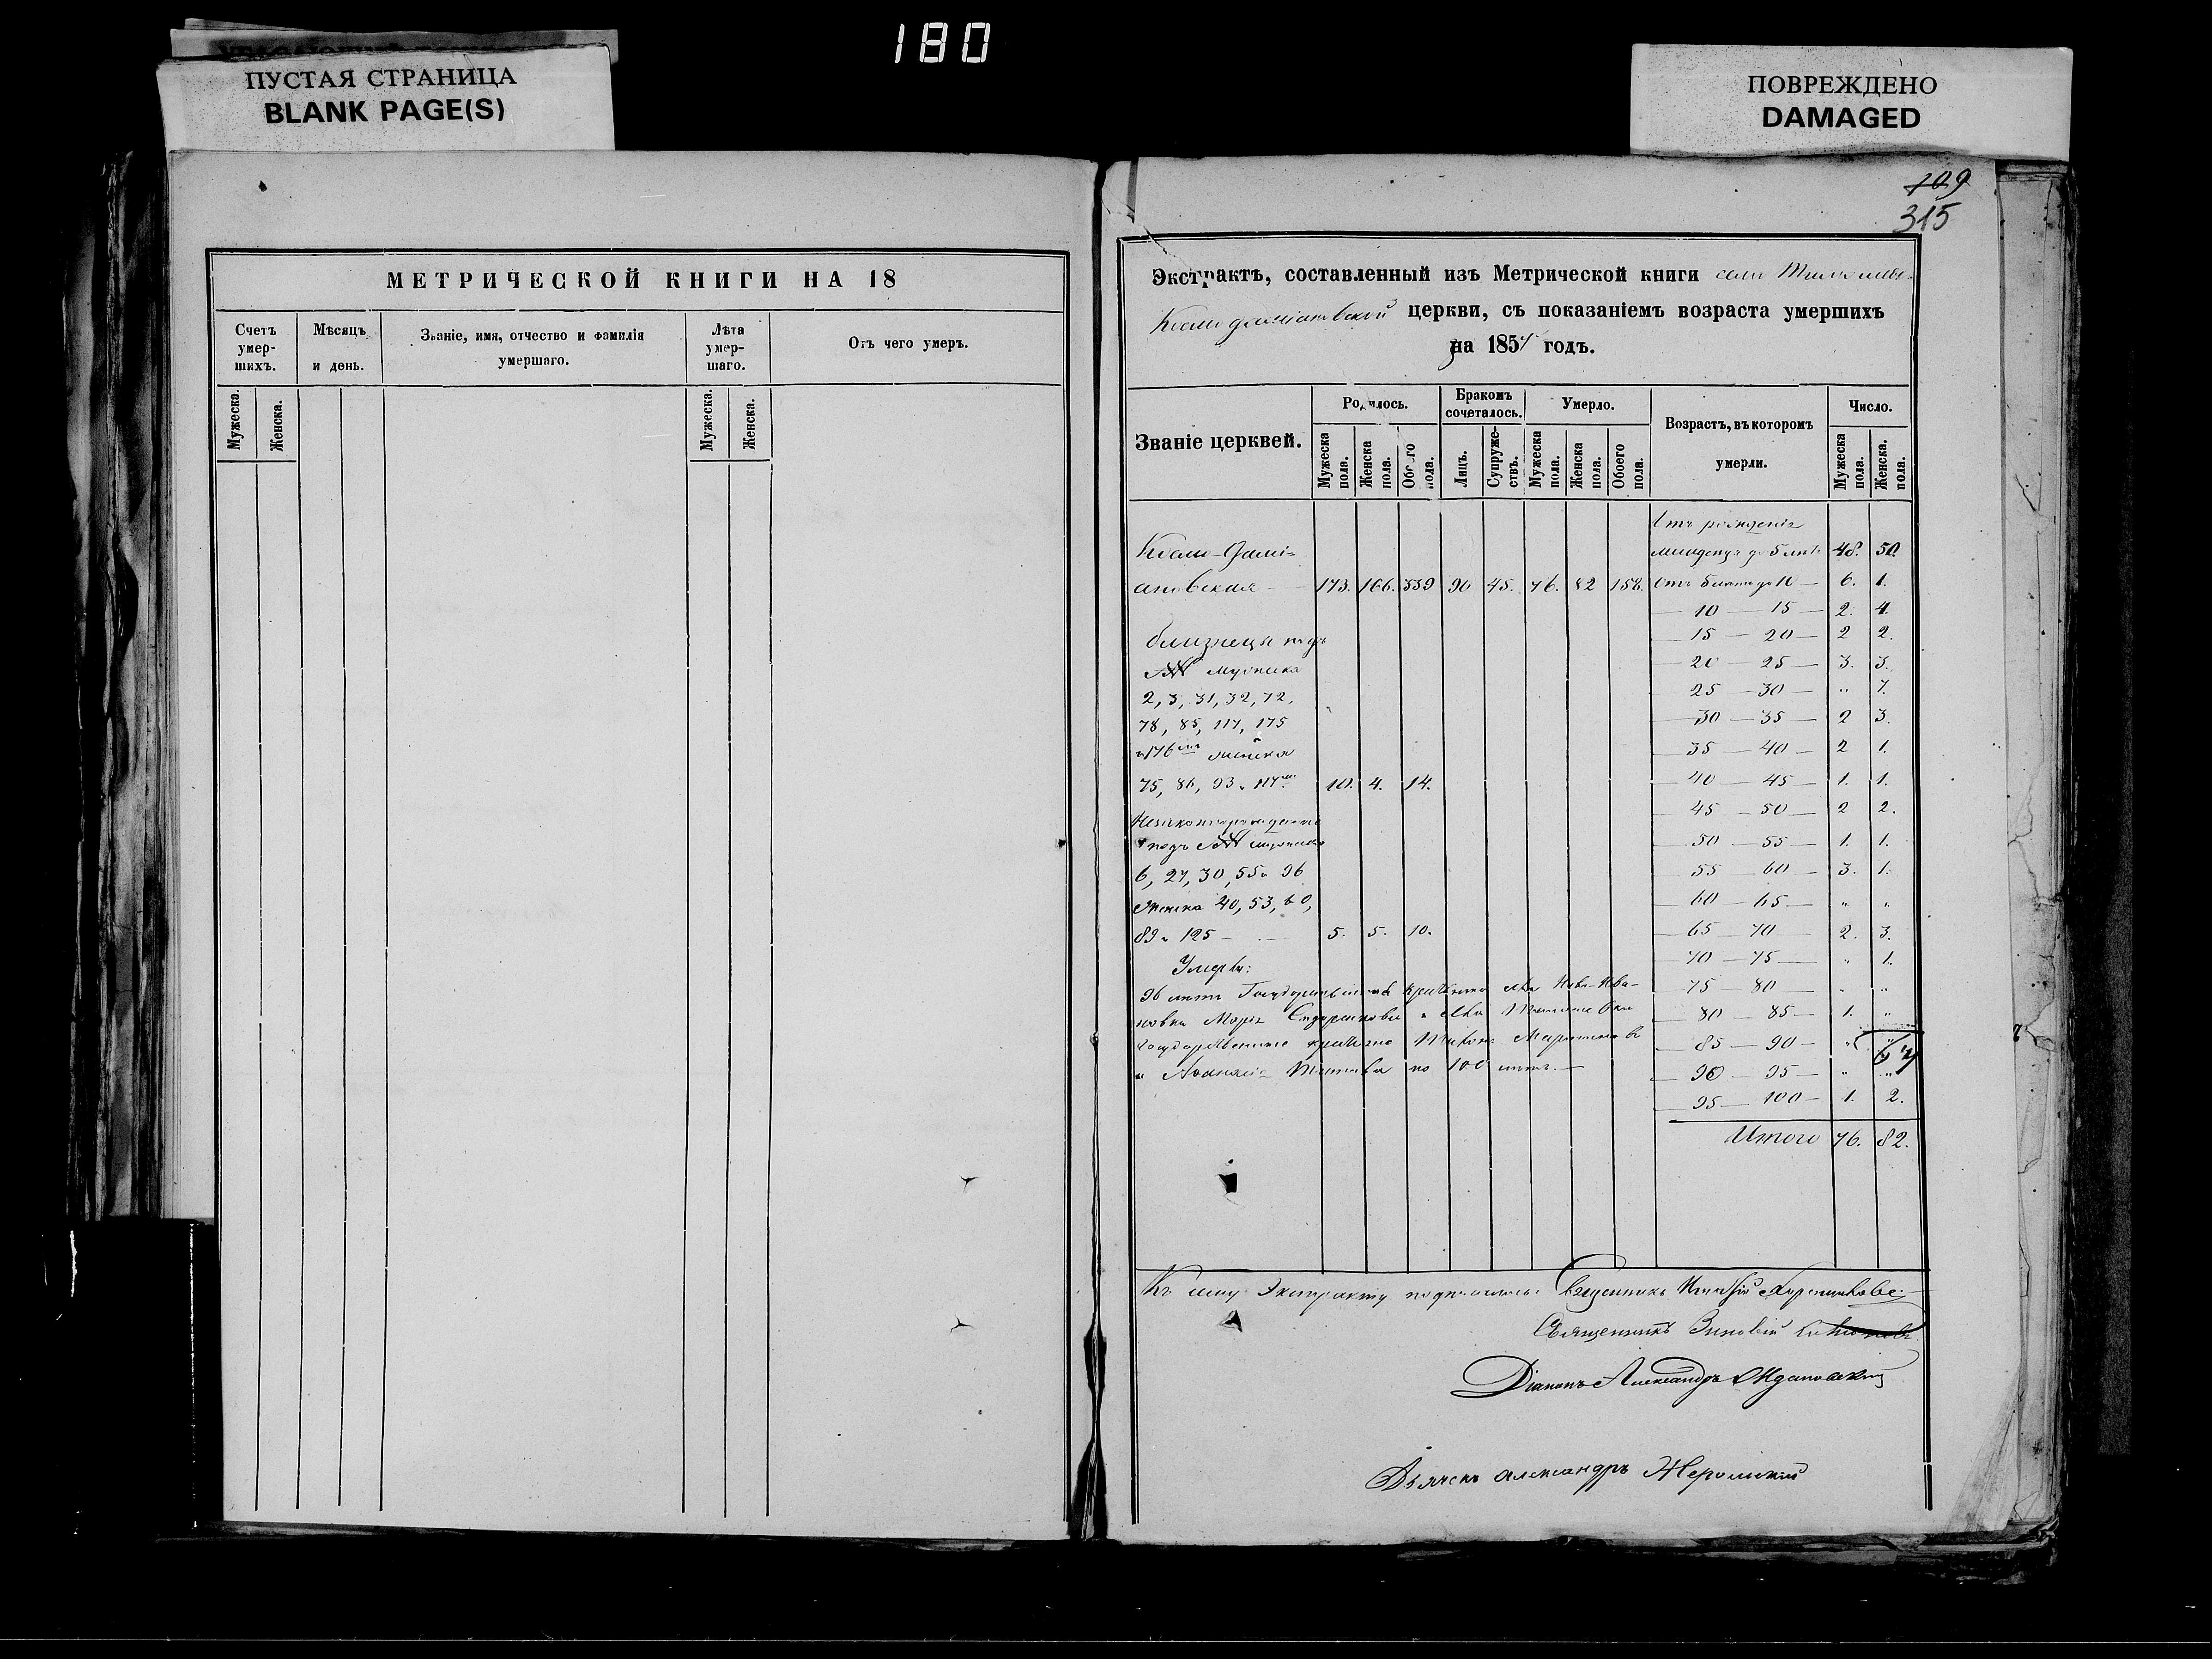 180
ПУСТАЯ СТРАНИЦА
BLANK PAGE(S)
ПОВРЕЖДЕНО
DAMAGED
МЕТРИЧЕСКОЙ КНИГИ НА 18
Счетъ умер-шихъ.
Мѣсяцъ и день.
Званіе, имя, отчество и фамилія умершаго.
Лѣта умер-шаго.
Отъ чего умеръ.
Мужеска.
Женска.
Мужеска.
Женска.
109
315
Экстрактъ, составленный изъ Метрической книги села
Космодаміановской церкви, съ показаніемъ возраста умершихъ
на 1857 годъ.
Званіе церквей.
Родилось.
Бракомъ сочеталось.
Умерло.
Возрастъ, въ которомъ умерли.
Число.
Мужеска пола.
Женска пола.
Обоего пола.
Лицъ.
Супруже-ствъ.
Мужеска пола.
Женска пола.
Обоего пола.
Мужеска пола.
Женска пола.
Отъ рожденія
Космо-Дамі- младенца до 5 лѣтъ 48. 50.
ановская 173. 166. 339 90 45. 76. 82 158. Отъ 5 лѣтъ до 10 — 6. 1.
10 — 15 — 2. 4.
близнецы подъ 15 — 20 — 2 2.
№№ мужеска 20 — 25 — 3. 3.
2, 3, 31, 32, 72, 25 — 30 — " 7.
78, 85, 117, 175 30 — 35 — 2 3.
и 176 женска 35 — 40 — 2 1.
75, 86, 93 и 117 10. 4. 14. 40 — 45 — 1. 1.
45 — 50 — 2 2.
Незаконнорожденные
подъ №№ мужеска 50 — 55 — 1. 1.
6, 27, 30, 55 и 96 55 — 60 — 3. 1.
Женска 40, 53, 60, 60 — 65 — " "
89 и 125 — 5. 5. 10. 65 — 70 2. 3.
Умерли: 70 — 75 — " 1.
96 лѣтъ 75 — 80 — " "
Марія 80 — 85 — 1. "
85 — 90 — " "
по 100 лѣтъ. — 90 — 95 — " "
95 — 100 — 1. 2.
Итого 76. 82.
Къ сему Экстракту подписались: Священникъ
Священникъ Зиновій
Діаконъ Александръ
Дьячекъ Александръ